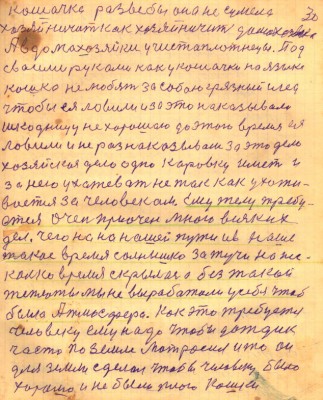 кошачка разве бы она не сумела 30
хозяйничат как хозяйничит домохозяйка
А в домахозяйки учиста плотнецы. Под
своеми руками как у кошачки на языке
кошка не любят за собою грязний след
чтобы ея ловили из за это наказывали
шкодницу не хорошаю до этого время ея
ловили и не раз наказывали за это дело
хозяйская дело одно каровку имет и
за него ухатеват не так как ухажи-
вается за человекам. Ему тему требу-
ется очен причен много всяких
дел, чего на на нашей пути и в наше
такое время солнышко за тучи на нес-
калко время скрылася а без такой
теплоты мы не выработали у себя чтоб
было Атмосфера. Как это требуется
человеку ему надо чтобы дождик
часто по земли мотросил и то он
для земли сделал чтобы человеку было
хорошо и не было плохо Кошки